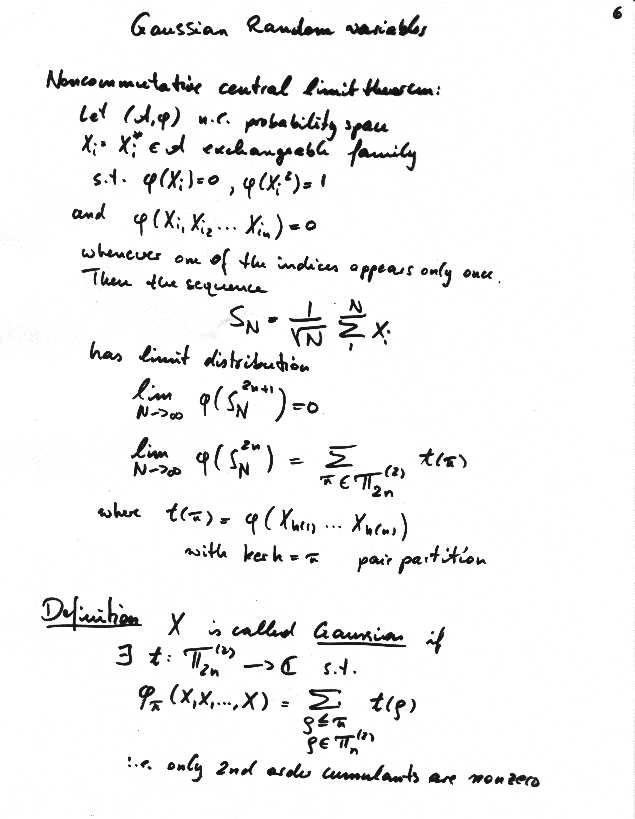 6
Gaussian Random variables
Noncommutative central limit theorem:
Let (𝒜,φ) n.c. probability space
Xᵢ = Xᵢ* ∈ 𝒜 exchangeable family
s.t. φ(Xᵢ)=0, φ(Xᵢ²)=1
and φ(Xᵢ₁ Xᵢ₂ ... Xᵢₙ) = 0
whenever one of the indices appears only once.
Then the sequence
S_N = 1/√N Σ₁ᴺ Xᵢ
has limit distribution
lim_{N→∞} φ(S_N^{2n+1}) = 0
lim_{N→∞} φ(S_N^{2n}) = Σ_{π ∈ Π_{2n}^{(2)}} t(π)
where t(π) = φ(X_{h(1)} ... X_{h(n)})
with ker h = π pair partition
Definition X is called Gaussian if
∃ t: Π_{2n}^{(2)} → ℂ s.t.
φ_π(X,X,...,X) = Σ_{ρ≤π, ρ∈Π_n^{(2)}} t(ρ)
i.e. only 2nd order cumulants are nonzero